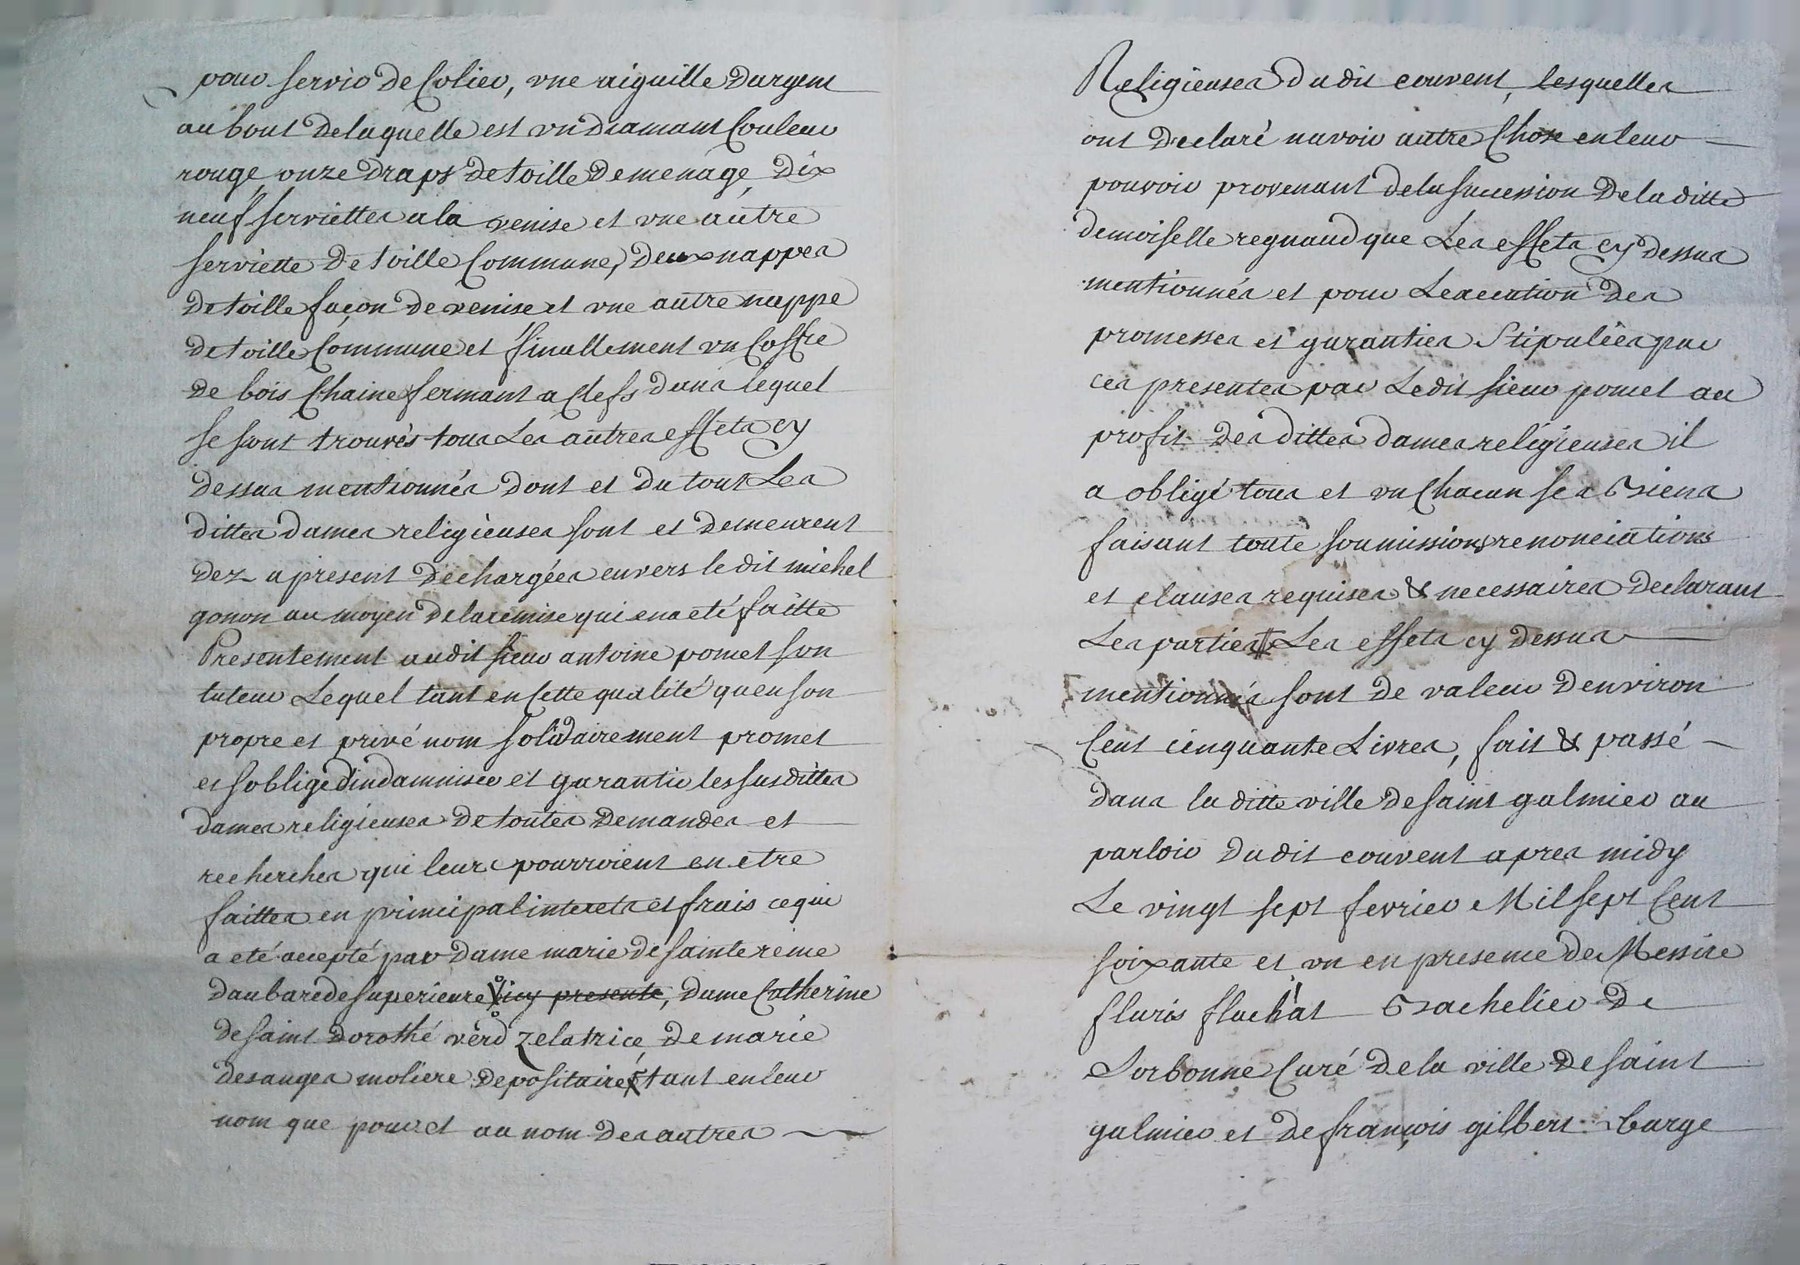 pour servir de Colier, une aiguille dargent
au bout de laquelle est un diamant Couleur
rouge, onze draps de toille de menage, dix
neuf serviettes a la venise et une autre
serviette de toille Commune, deux nappes
de toille façon de venise et une autre nappe
de toille Commune et finallement un Coffre
de bois Chaine fermant a Clefs dans lequel
se sont trouvés tous Les autres effets cy
dessus mentionnés dont et du tout Les
dittes dames religieuses sont et demeurent
dez a present déchargées envers le dit michel
gonon au moyen de la remise qui en a eté faitte
Presentement audit sieur antoine pomet son
tuteur Lequel tant en Cette qualité quen son
propre et privé nom solidairement promet
et soblige dindamniser et garantir les susdittes
dames religieuses de toutes demandes et
recherches qui leurs pourroient en etre
faittes en principal interets et frais ce qui
a eté accepté par dame marie de sainte reine
daubarede superieure icy presente, dame Catherine
de saint dorothé verd zelatrice de marie
des anges moliere depositaire tant en leur
nom que pour et au nom des autres
Religieuses dudit couvent, lesquelles
ont declaré navoir autre Chose en leur
pouvoir provenant de la succession de la ditte
demoiselle regnaud que Les effets cy dessus
mentionnés et pour Lexecution des
promesses et garanties Stipulées par
ces presentes par Ledit sieur pomet au
profit des dittes dames religieuses il
a obligé tous et un Chacun ses Biens
faisant toute soumissions renonciations
et clauses requises & necessaires declarant
Les parties Les effets cy dessus
mentionnés sont de valeur denviron
Cent cinquante Livres, fait & passé
dans la ditte ville de saint galmier au
parloir dudit couvent apres midy
Le vingt sept fevrier Mil sept Cent
soixante et un en presence de Messire
fluris fluchat Bachelier de
Sorbonne Curé de la ville de saint
galmier et de françois gilbert Barge